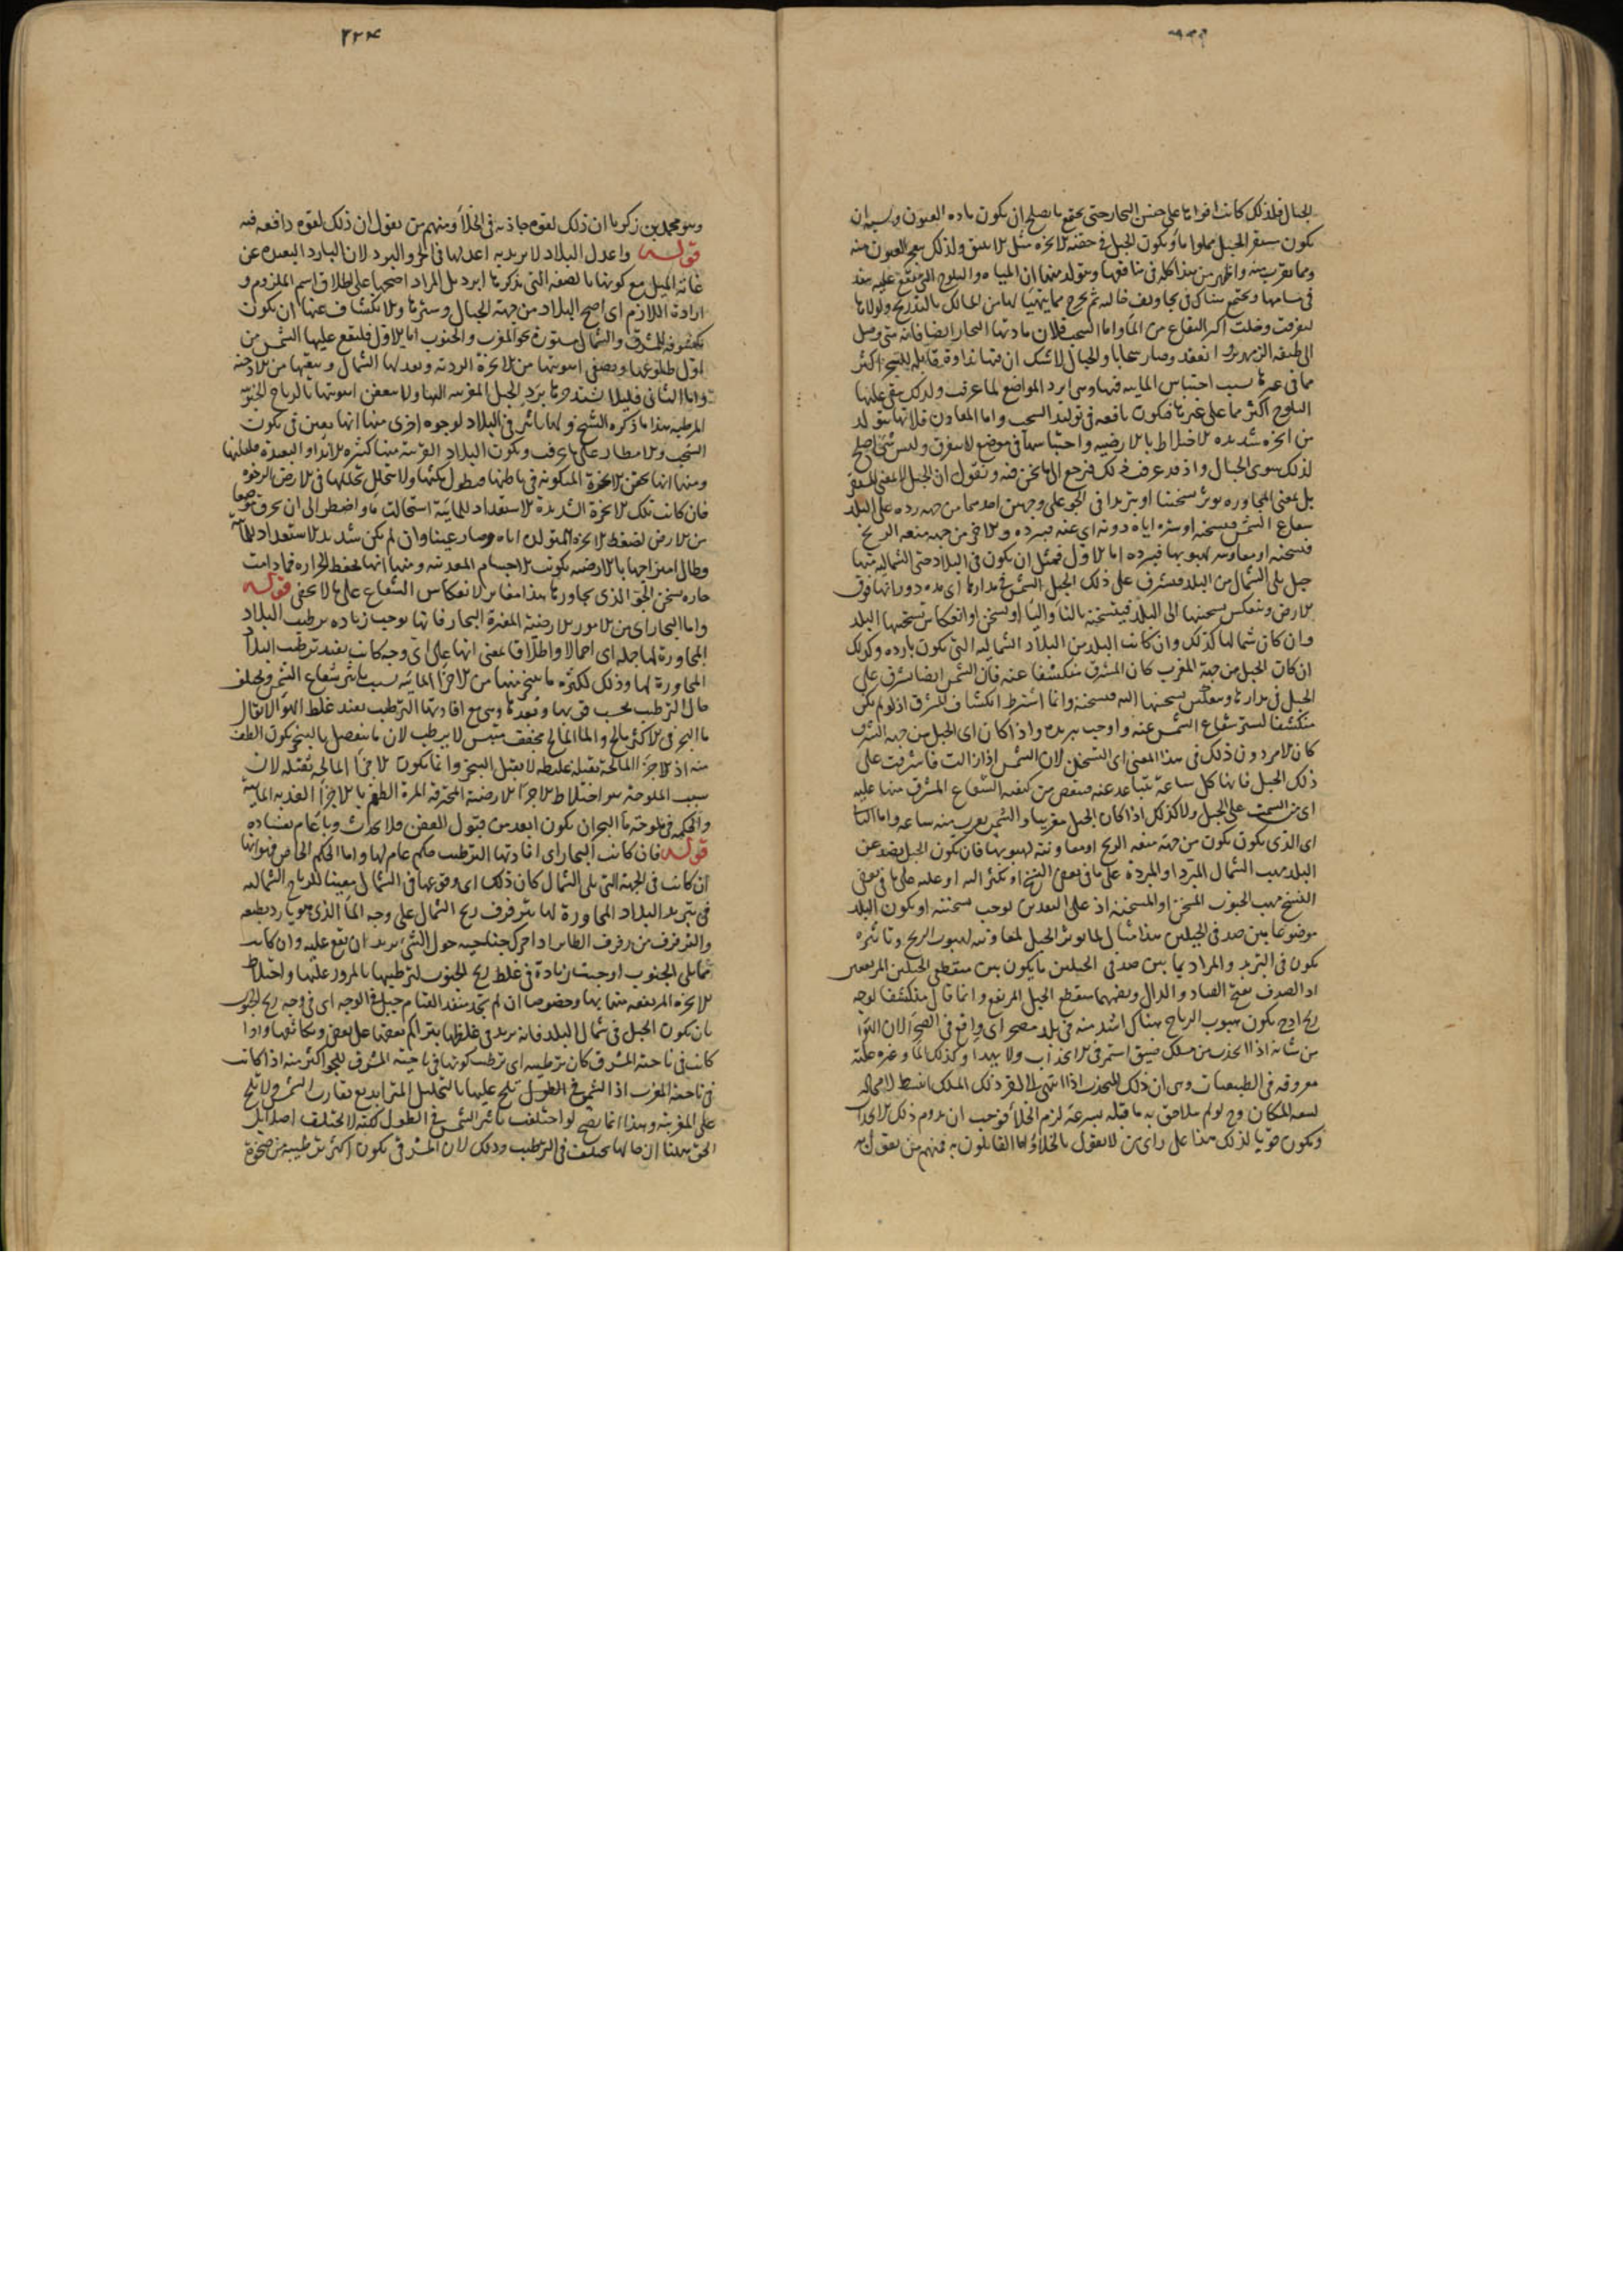 الجبال فلذلك كانت اقواها على حقن البخار حتى يجتمع ما يصلح ان يكون مادة العيون ويشبه ان
يكون مستقر الجبل مملوا ماء ويكون الجبل في حقنه الابخرة مثل الانبيق ولذلك العيون منه
في مسامها ويجتمع هناك في تجاويف خالية ثم يخرج مما يتهيأ لها من المسالك بالتدريج ولولاها
البقاع من الماء واما السحب فلان مادتها البخار ايضا فانه متى وصل
الى طبقة الزمهرير انعقد وصار سحابا والجبال لا شك ان فيها نداوة
مما في غيرها بسبب احتباس المائية فيها وهي ابرد المواضع لما عرفت ولذلك يبقى عليها
الثلوج اكثر مما على غيرها فيكون نافعة في توليد السحب واما المعادن فلانها يتولد
من ابخرة شديدة الاختلاط بالارضية واحتباسها في موضع لا يتفرق وليس شئ اصلح
لذلك سوى الجبال واذ قد عرفت ذلك فنرجع الى ما نحن فيه ونقول ان الجبل
بل بمعنى المجاورة يؤثر تسخينا او تبريدا في الجو على وجهين احدهما من جهة رده على البلد
شعاع الشمس فيسخنه او ستره اياه دونه اي عنه فيبرده والآخر من جهة منعه الريح
فيسخنه او معاونته لهبوبها فيبرده اما الاول فمثل ان يكون في البلاد حتى الشمالية منها
جبل يلي الشمال من البلد فيشرق على ذلك الجبل الشمس في مدارها اي مدة دورانها فوق
الارض وينعكس تسخينها الى البلد فيتسخنه
وان كان شماليا كذلك وان كانت البلد من البلاد الشمالية التي يكون باردة وكذلك
ان كان الجبل من جهة المغرب كان المشرق منكشفا عنه فان الشمس ايضا يشرق على
الجبل في مدارها وينعكس تسخينها اليه فيسخنه وانما اشترط انكشاف المشرق اذ لو لم يكن
منكشفا لستر شعاع الشمس عنه واوجب تبريده واذا كان اي الجبل من جهة الشرق
كان الامر دون ذلك في هذا المعنى اي التسخين لان الشمس اذا زالت فاشرقت على
ذلك الجبل فانها كل ساعة تتباعد عنه فينقص من كيفية الشعاع المشرق منها عليه
اي من السمت على الجبل ولا كذلك اذا كان الجبل مغربيا والشمس يقرب منه ساعة واما الثاني
اي الذي يكون من جهة منعه الريح او معاونته لهبوبها فان يكون الجبل يصد عن
البلد مهب الشمال المبرد او المبردة على ما في بعض النسخ او يكثر اليه او عليه على ما في بعض
النسخ مهب الجنوب المسخن او المسخنة اذ على البعد من يوجب سخنته او يكون البلد
موضوعا بين صدفي الجبلين هذا مثال لما يؤثر الجبل لمعاونته لهبوب الريح وتاثيره
يكون في التبريد والمراد بما بين صدفي الجبلين ما يكون بين منقطعي الجبلين المرتفعين
اذ الصدف بفتح الصاد والدال وبضمهما منقطع الجبل المرتفع وانما قال منكشفا لوجه
ريح اذ ح يكون هبوب الرياح هناك اشد منه في بلد مصحر اي واقع في الصحراء لان الهواء
من شانه اذا انجذب من مسلك ضيق استمر في الانجذاب ولا يهدأ وكذلك الماء وغيره علته
معروفة في الطبيعيات وهي ان ذلك المنجذب اذا انتهى الى آخر ذلك المسلك انبسط لا محالة
لسعة المكان وح لو لم يلاحق به ما قبله بسرعة لزم الخلاء فوجب ان يدوم ذلك
ويكون قويا لذلك هذا على راى من لا يقول بالخلاء واما القايلون به فمنهم من يقول به
٢٢٤
وهو محمد بن زكريا ان ذلك لقوة جاذبة في الخلاء ومنهم من يقول ان ذلك لقوة دافعة فيه
قوله واعدل البلاد لا يريد به اعدلها في الحر والبرد لان البارد البعيدة عن
غاية الميل مع كونها بالصفة التي يذكرها ابرد بل المراد اصحها على اطلاق اسم الملزوم و
ارادة اللازم اي اصح البلاد من جهة الجبال وسترها والانكشاف عنها ان يكون
مكشوفة للمشرق والشمال مستورة نحو المغرب والجنوب اما الاول فليقع عليها الشمس من
اول طلوعها ويصفي اهويتها من الابخرة الردية ويعد لها الشمال
واما الثاني فليلا يشتد حرها برد الجبل المغربية اليها ولا يتعفن اهويتها بالرياح الجنوبية
المرطبة هذا ما ذكره الشيخ ولها تاثير في البلاد لوجوه اخرى منها انها يعين في تكون
السحب والامطار على ما عرفت ويكون البلاد القريبة منها كثيرة الانداء والبعيدة
ومنها انها يحقن الابخرة المتكونة في باطنها فيطول مكثها ولا يتحلل تحللها في الارض الرخوة
فان كانت تلك الابخرة الشديدة الاستعداد للمائية استحالت ماء واضطر الى ان يخرق
من الارض لضغط الابخرة المتولدة اياه وصار عينا وان لم يكن شديد الاستعداد للمائية
وطال امتزاجها بالارضية تكونت الاجسام المعدنية ومنها انها يحفظ الحرارة فما دامت
حارة يسخن الجو الذي يجاورها هذا مغاير لانعكاس الشعاع على ما لا يخفى قوله
واما البحار اي من الامور الارضية المغيرة البحار فانها يوجب زيادة ترطيب البلاد
المجاورة لها جملة اي اجمالا واطلاقا بمعنى انها على اي وجه كانت يفيد ترطيب البلاد
المجاورة لها وذلك لكثرة ما يتبخر منها من الاجزاء المائية بسبب تاثير شعاع الشمس ويختلف
حال الترطيب بحسب قربها وبعدها وهي مع افادتها الترطيب يفيد غلظ الهواء لا يقال
ماء البحر في الاكثر مالح والماء المالح مجفف ميبس لا يرطب لان ما ينفصل بالتبخر يكون الطف
منه اذ الاجزاء المالحة ثقيلة غليظة لا يقبل التبخر وانما يكون الاجزاء المالحة ثقيلة لان
سبب الملوحة هو اختلاط الاجزاء الارضية المحترقة المرة الطعم بالاجزاء العذبة المائية
والحكمة في ملوحة ماء البحر ان يكون ابعد من قبول العفن فلا يحدث وباء عام بفساده
قوله فان كانت البحار اي افادتها الترطيب حكم عام لها واما الحكم الخاص فهو انها
ان كانت في الجهة التي يلي الشمال كان ذلك اي وقوعها في الشمال معينا للرياح الشمالية
في تبريد البلاد المجاورة لها بترفرف ريح الشمال على وجه الماء الذي هو بارد بطبعه
والترفرف من رفرف الطاير اذا حرك جناحيه حول الشئ يريد ان يقع عليه وان كانت
مما يلي الجنوب اوجبت زيادة في غلظ ريح الجنوب لترطيبها بالمرور عليها واختلاط
الابخرة المرتفعة منها بها وخصوصا ان لم يجد منفذا لقيام جبل في الوجه اي في وجه ريح الجنوب
بان يكون الجبل في شمال البلد فانه يزيد في غلظها بتراكم بعضها على بعض وتكاثفها واذا
كانت في ناحية المشرق كان ترطيبه اي ترطيب كونها في ناحية المشرق للجو اكثر منه اذا كانت
في ناحية المغرب اذا الشمس في الطول تلح عليها بالتحليل المتزايد مع تقارب الشمس ولا تلح
على المغربية وهذا انما يصح لو اختلف تاثير الشمس في الطول لكنه لا يختلف اصلا بل
الحق هنا ان حالها يختلف في الترطيب وذلك لان المشرقي يكون اكثر ترطيبه من ضحوة